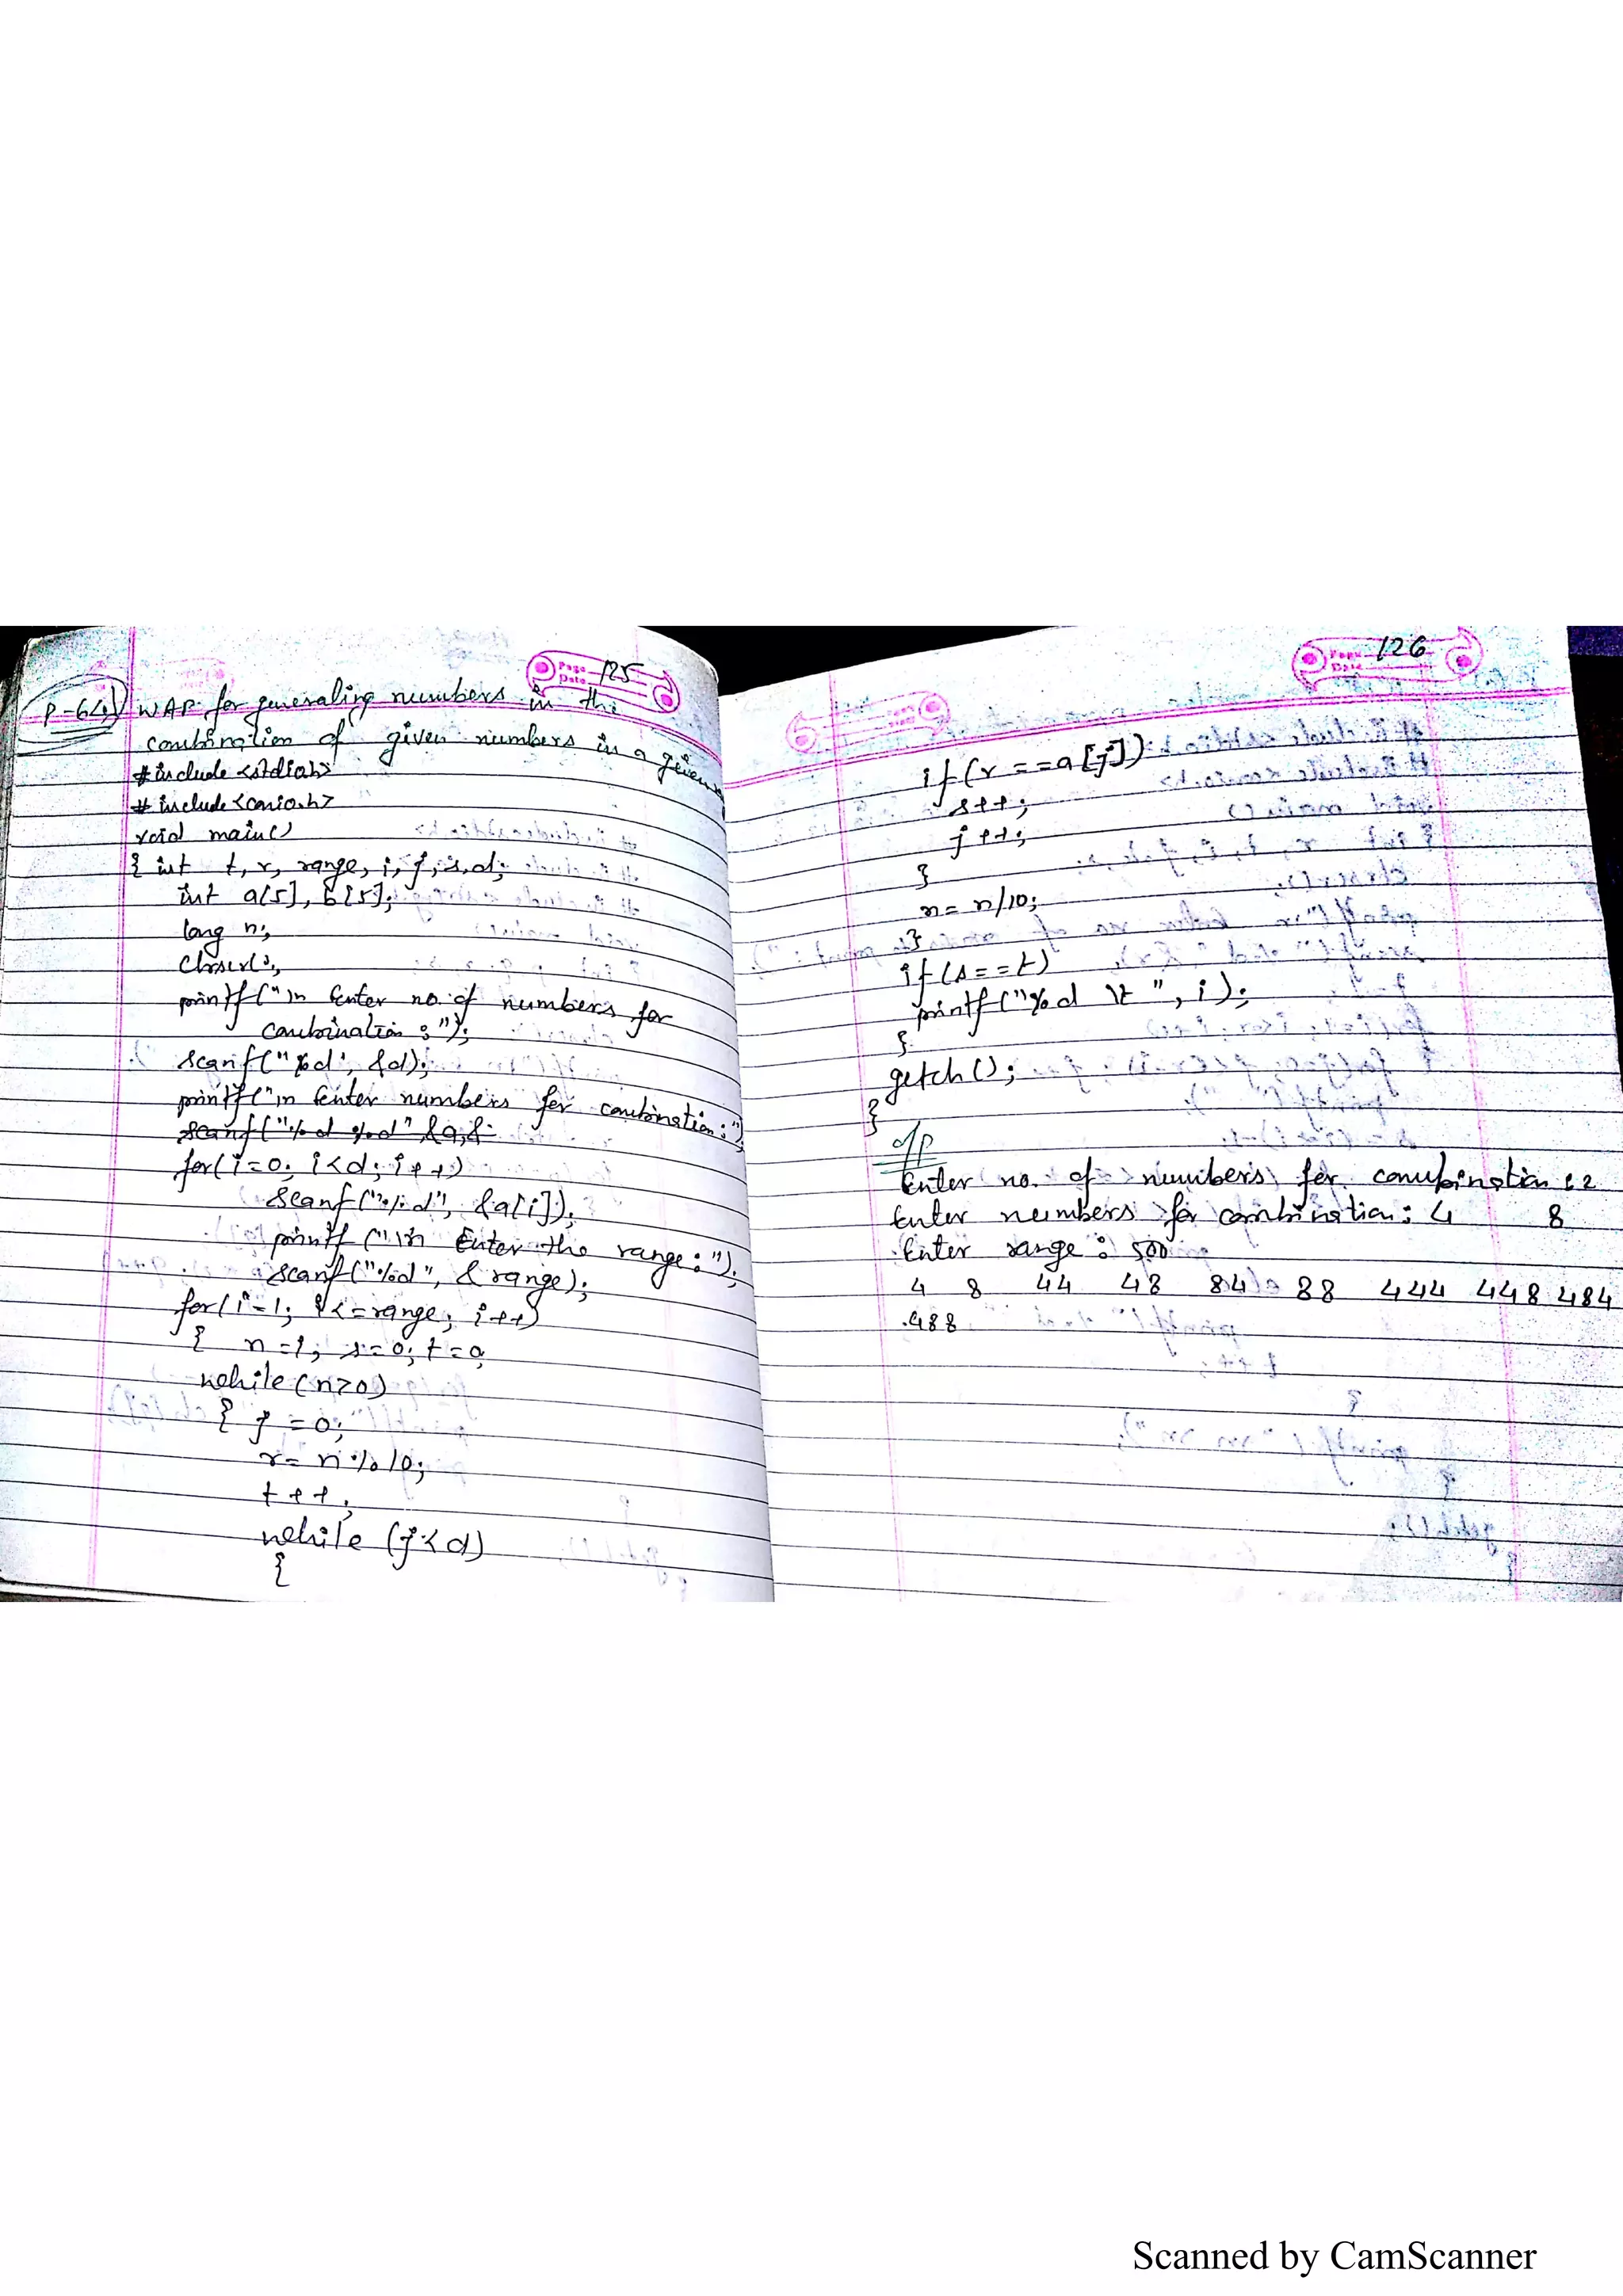 Page 125
Date
P-64) WAP for generating numbers in the
combination of given numbers in a given
#include <stdio.h>
#include <conio.h>
void main()
{ int t, r, range, i, j, s, d;
int a[5], b[5];
long n;
clrscr();
printf("\n Enter no. of numbers for
combination :");
scanf("%d", &d);
printf("\n Enter numbers for combination:");
scanf("%d %d" &a,&
for(i=0; i<d; i++)
scanf("%d", &a[i]);
printf("\n Enter the range:");
scanf("%d", &range);
for(i=1; i<=range; i++)
{ n=i; s=0; t=0;
while(n>0)
{ j=0;
r=n%10;
t++;
while (j<d)
{
Page 126
Date
if(r==a[j])
s++;
j++;
}
n=n/10;
}
if(s==t)
printf("%d \t", i);
}
getch();
}
o/p
Enter no. of numbers for combination : 2
Enter numbers for combination: 4 8
Enter range: 500
4 8 44 48 84 88 444 448 484
488
Scanned by CamScanner